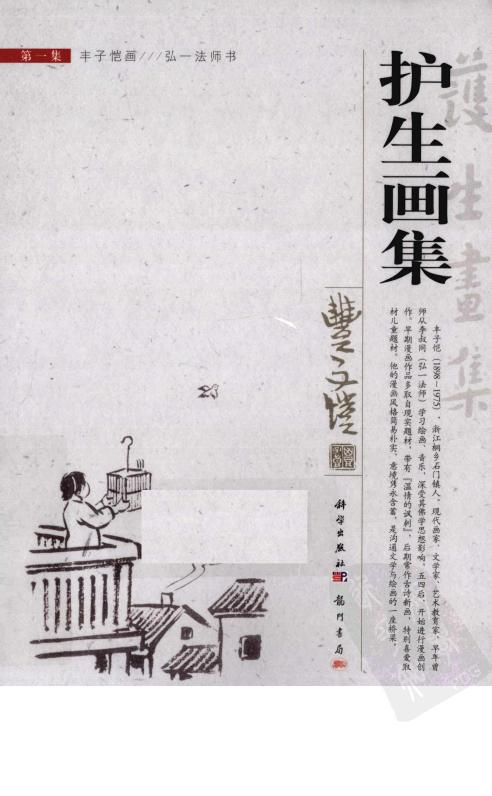 第一集 丰子恺画///弘一法师书
护生画集
護生畫集
丰子恺（1898－1975），浙江桐乡石门镇人。现代画家、文学家、艺术教育家，早年曾
师从李叔同（弘一法师）学习绘画、音乐，深受其佛学思想影响。五四后，开始进行漫画创
作。早期漫画作品多取自现实题材，带有『温情的讽刺』，后期常作古诗新画，特别喜爱取
材儿童题材。他的漫画风格简易朴实，意境隽永含蓄，是沟通文学与绘画的一座桥梁。
豐子愷
科学出版社
龍門書局